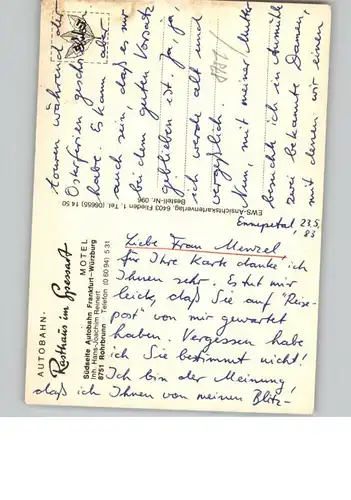 Ennepetal, 23.5.
83
Liebe Frau Menzel,
für Ihre Karte danke ich
Ihnen sehr. Es tut mir
leid, daß Sie auf "Reise-
post" von mir gewartet
haben. Vergessen habe
ich Sie bestimmt nicht!
Ich bin der Meinung,
daß ich Ihnen von meinen Blitz-
touren während der
Osterferien geschrieben
habe. Es kann aber
auch sein, daß es nur
bei dem guten Vorsatz
geblieben ist. Ja, ja,
ich werde alt und
vergeßlich.
Nun, mit meiner Mutter
besuchte ich in Aumühle
zwei bekannte Damen,
mit denen wir einen
AUTOBAHN-
Rasthaus im Spessart
MOTEL
Südseite Autobahn Frankfurt–Würzburg
Inh. Hans-Joachim Reinert
8751 Rohrbrunn · Telefon (0 60 94) 5 31
EWS-Ansichtskartenverlag, 6403 Flieden 1, Tel. (06655) 14 50
Bestell-Nr. 096